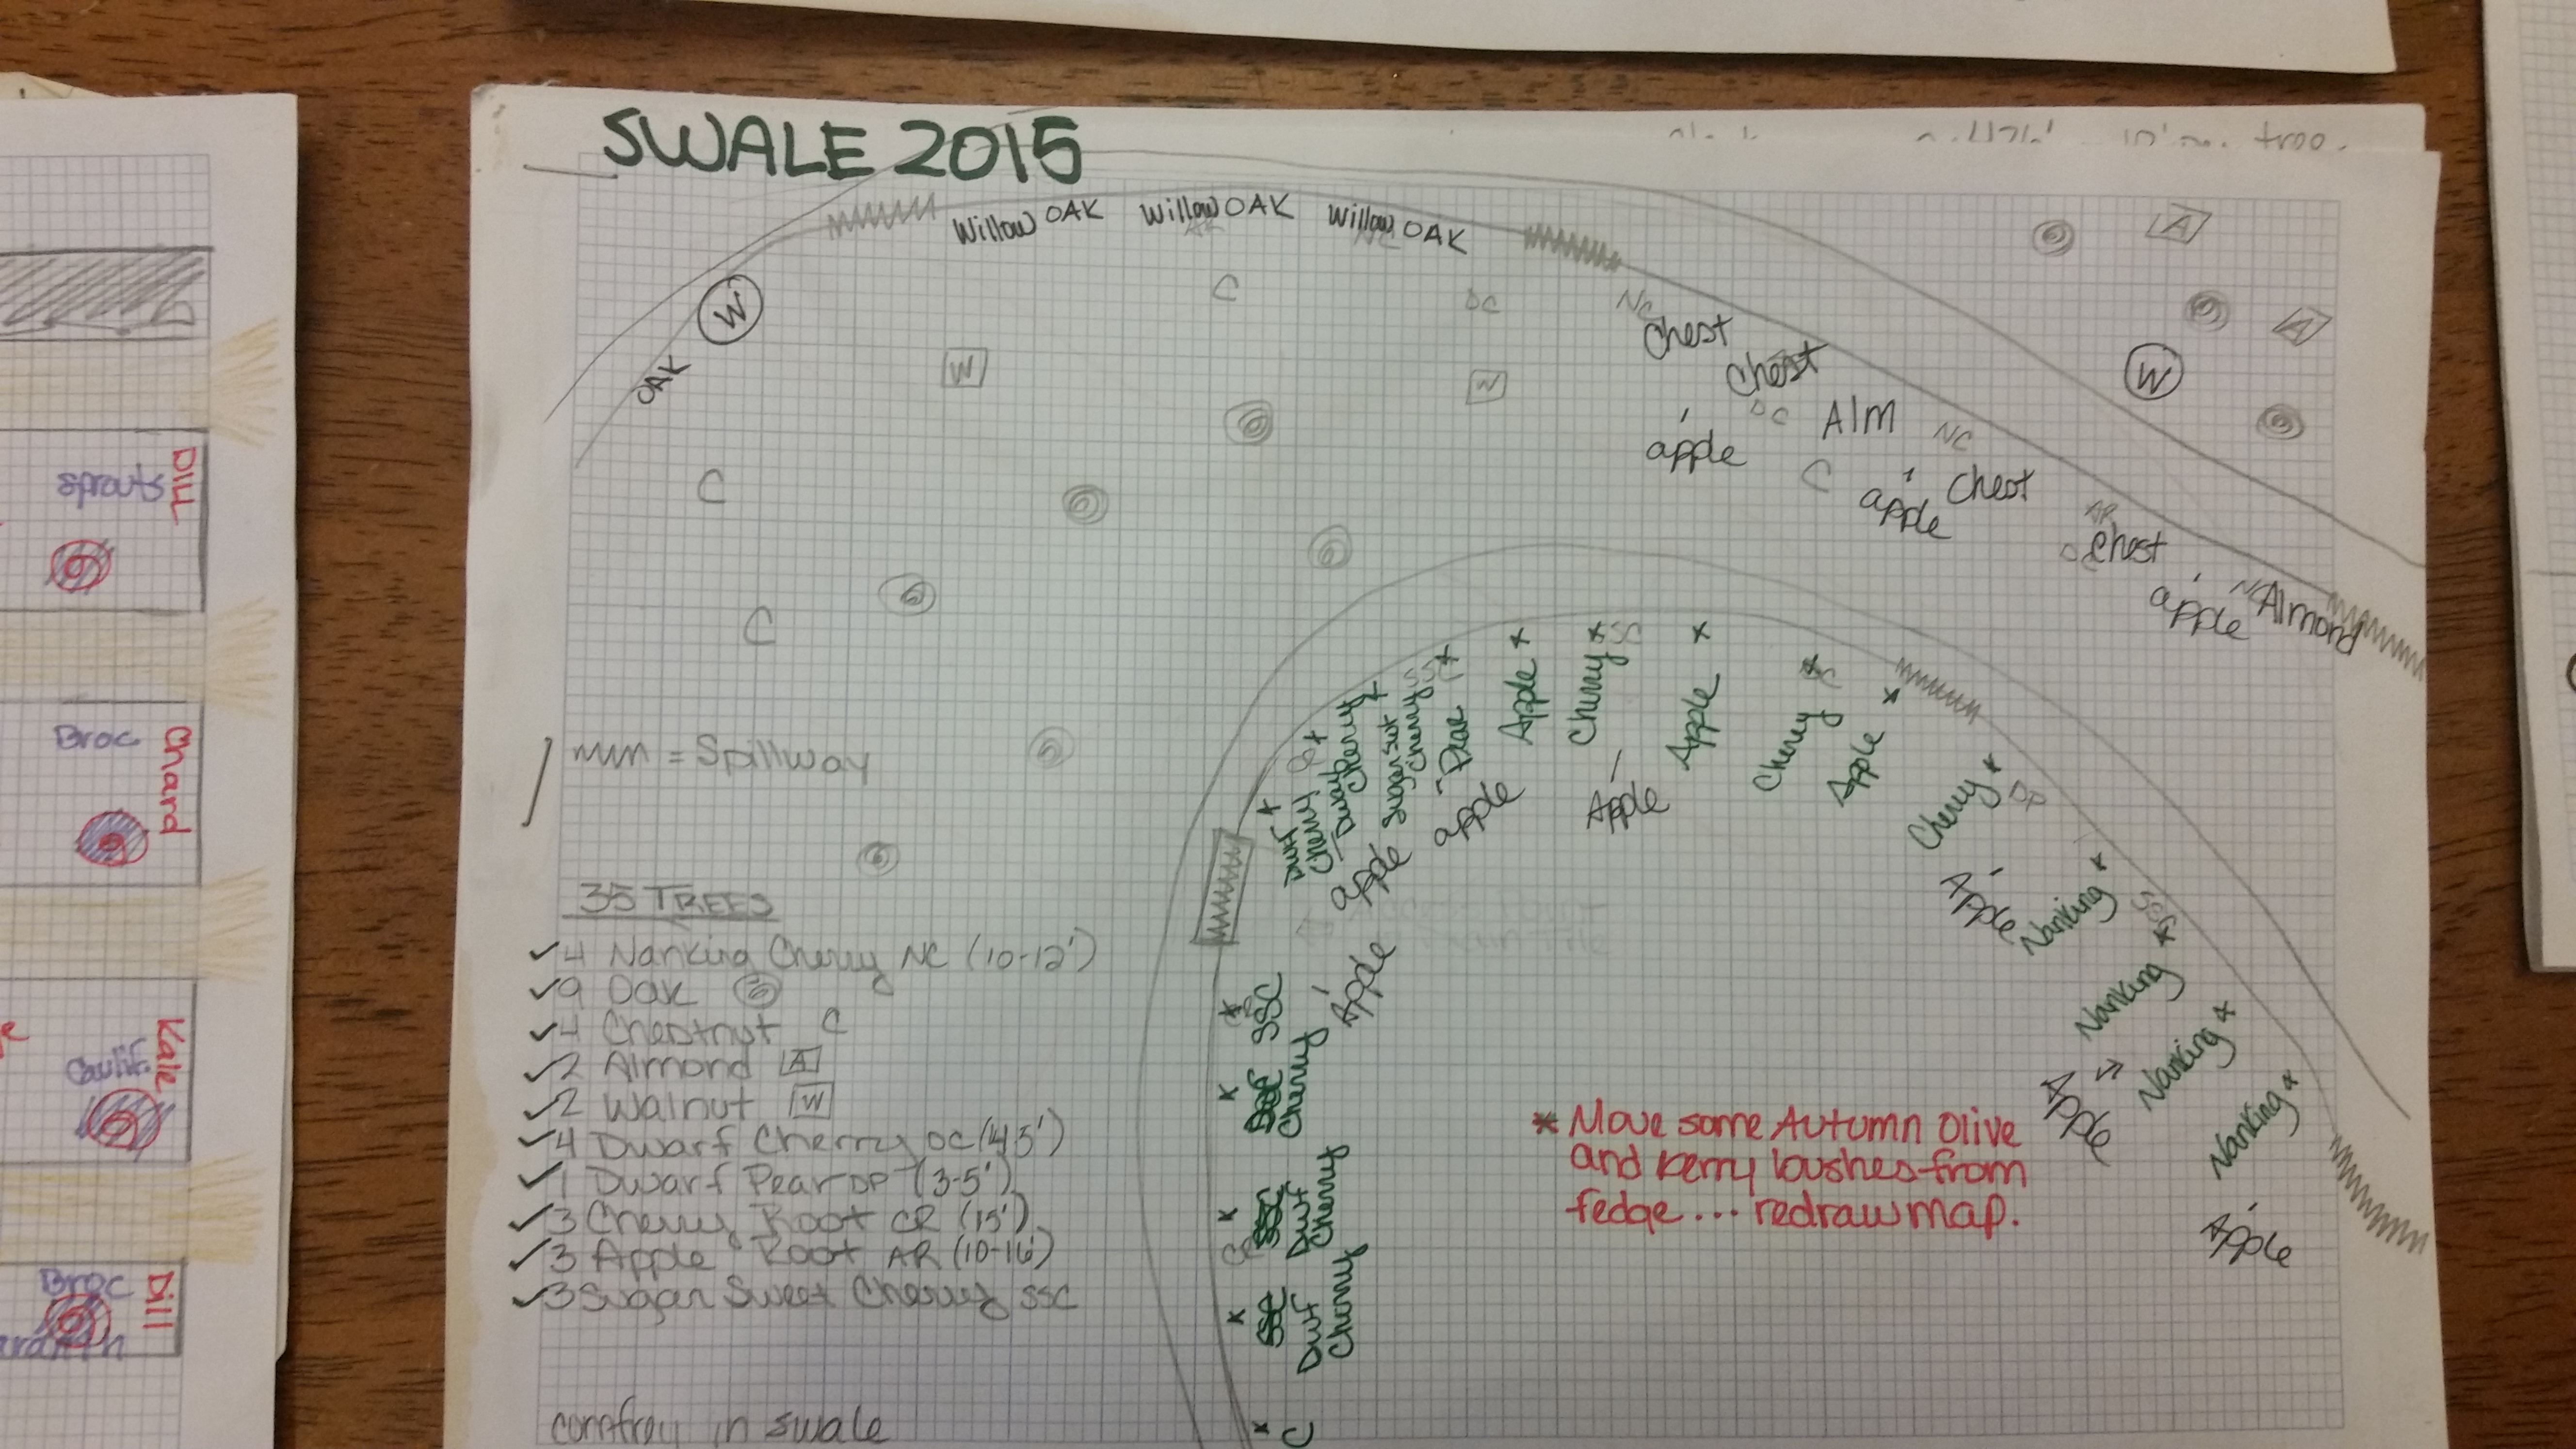 SWALE 2015
Willow OAK Willow OAK Willow OAK
A
W
OAK
C
DC
NC
Chest
Chest
A
W
W
W
apple
DC
Alm
NC
C
apple
Chest
C
AR
Chest
apple
NC
Almond
C
= Spillway
Dwf Cherry
Dwarf Cherry
Sugar swt Cherry
Pear
Apple
Cherry
Apple
Cherry
Apple
Cherry
DP
Nanking
SSC
Nanking
Nanking
Nanking
apple
apple
Apple
Apple
Apple
Apple
Apple
SSC
Cherry
Dwf Cherry
CR
Dwf Cherry
C
35 TREES
4 Nanking Cherry NC (10-12')
9 Oak
4 Chestnut C
2 Almond A
2 Walnut W
4 Dwarf Cherry DC
1 Dwarf Pear DP (3-5')
3 Cherry Root CR (15')
3 Apple Root AR (10-16')
3 Sugar Sweet Cherry SSC
comfrey in swale
* Move some Autumn Olive
and berry bushes from
fedge... redraw map.
DILL
sprouts
Broc
Chard
Kale
Caulif.
Broc
Dill